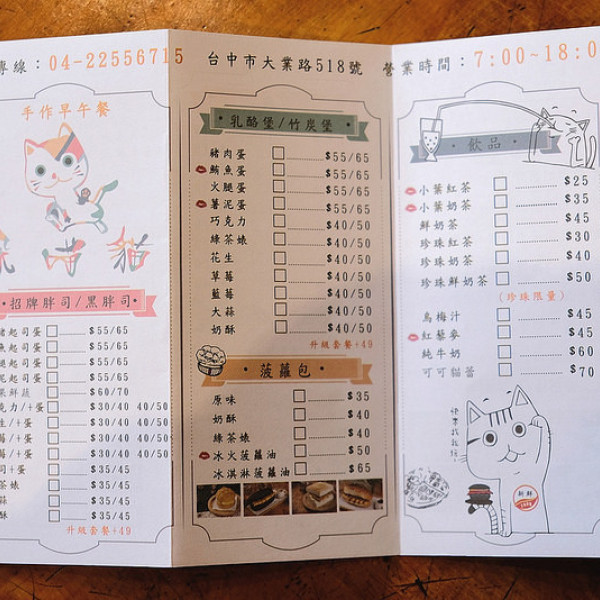 專線：04-22556715 台中市大業路518號 營業時間：7:00~18:0
手作早午餐
貓
·招牌胖司/黑胖司·
豬起司蛋 $55/65
魚起司蛋 $55/65
腿起司蛋 $55/65
泥起司蛋 $55/65
果鮮蔬 $60/70
克力/+蛋 $30/40 40/50
生/+蛋 $30/40 40/50
莓/+蛋 $30/40 40/50
莓/+蛋 $30/40 40/50
司+蛋 $35/45
茶婊 $35/45
蒜 $35/45
酥 $35/45
升級套餐+49
·乳酪堡/竹炭堡·
豬肉蛋 $55/65
鮪魚蛋 $55/65
火腿蛋 $55/65
薯泥蛋 $55/65
巧克力 $40/50
綠茶婊 $40/50
花生 $40/50
草莓 $40/50
藍莓 $40/50
大蒜 $40/50
奶酥 $40/50
升級套餐+49
·菠蘿包·
原味 $35
奶酥 $40
綠茶婊 $40
冰火菠蘿油 $50
冰淇淋菠蘿油 $65
·飲品·
小葉紅茶 $25
小葉奶茶 $35
鮮奶茶 $45
珍珠紅茶 $30
珍珠奶茶 $40
珍珠鮮奶茶 $50
(珍珠限量)
烏梅汁 $45
紅藜麥 $45
純牛奶 $60
可可貓蕾 $70
快來找我玩
新鮮